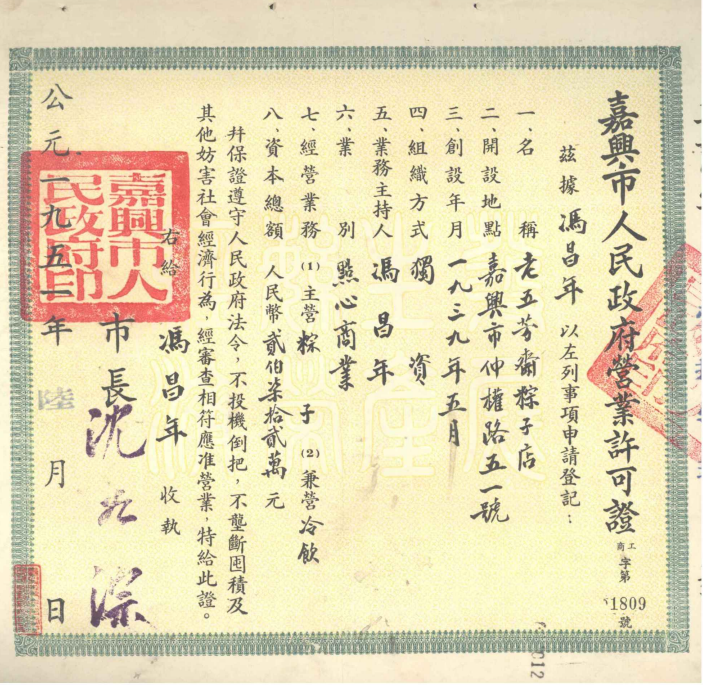 嘉興市人民政府營業許可證
工商字第1809號
茲據馮昌年以左列事項申請登記：
一、名稱 老五芳齋粽子店
二、開設地點 嘉興市仲權路五一號
三、創設年月 一九三九年五月
四、組織方式 獨資
五、業務主持人 馮昌年
六、業別 點心商業
七、經營業務 (1)主營粽子 (2)兼營冷飲
八、資本總額 人民幣貳伯柒拾貳萬元
幷保證遵守人民政府法令，不投機倒把，不壟斷囤積及
其他妨害社會經濟行為，經審查相符應准營業，特給此證。
右給 馮昌年 收執
市長 沈
公元一九五二年陸月 日
嘉興市人民政府印